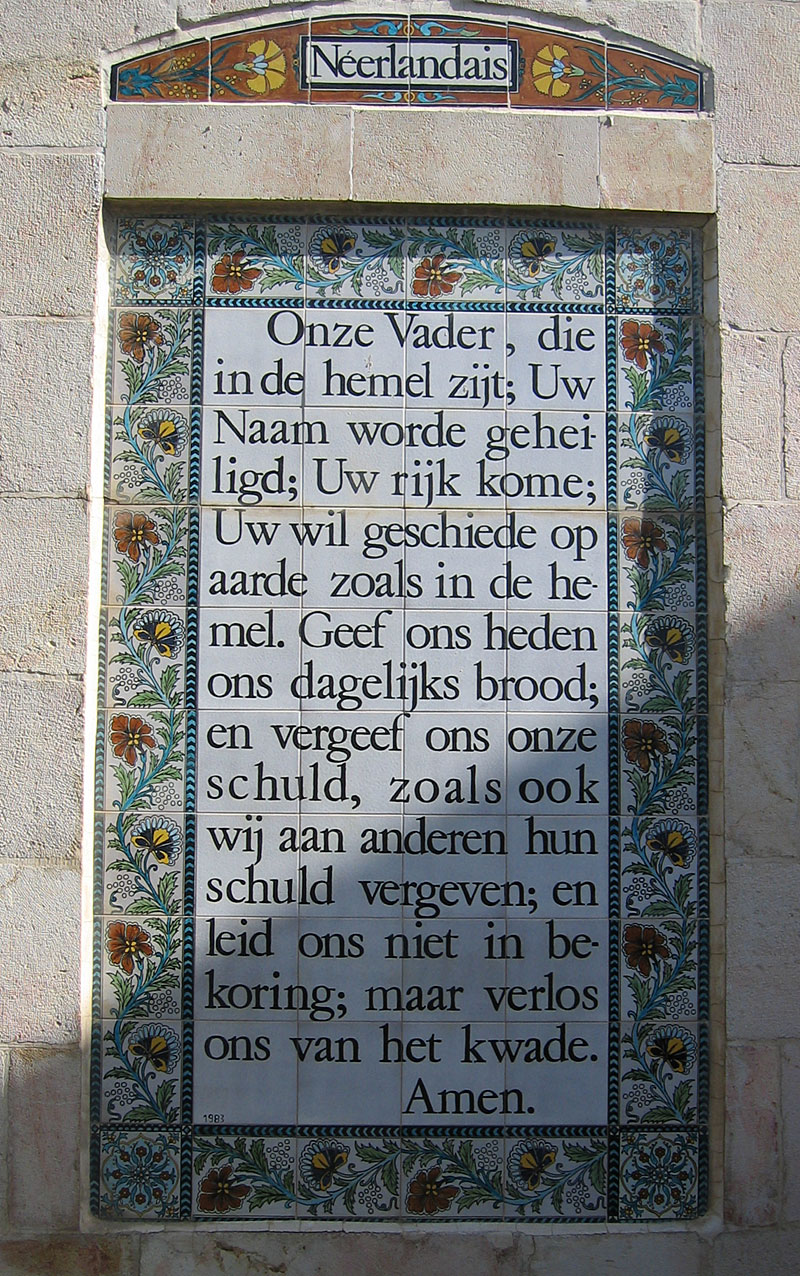 Néerlandais
Onze Vader, die
in de hemel zijt; Uw
Naam worde gehei-
ligd; Uw rijk kome;
Uw wil geschiede op
aarde zoals in de he-
mel. Geef ons heden
ons dagelijks brood;
en vergeef ons onze
schuld, zoals ook
wij aan anderen hun
schuld vergeven; en
leid ons niet in be-
koring; maar verlos
ons van het kwade.
Amen.
1983